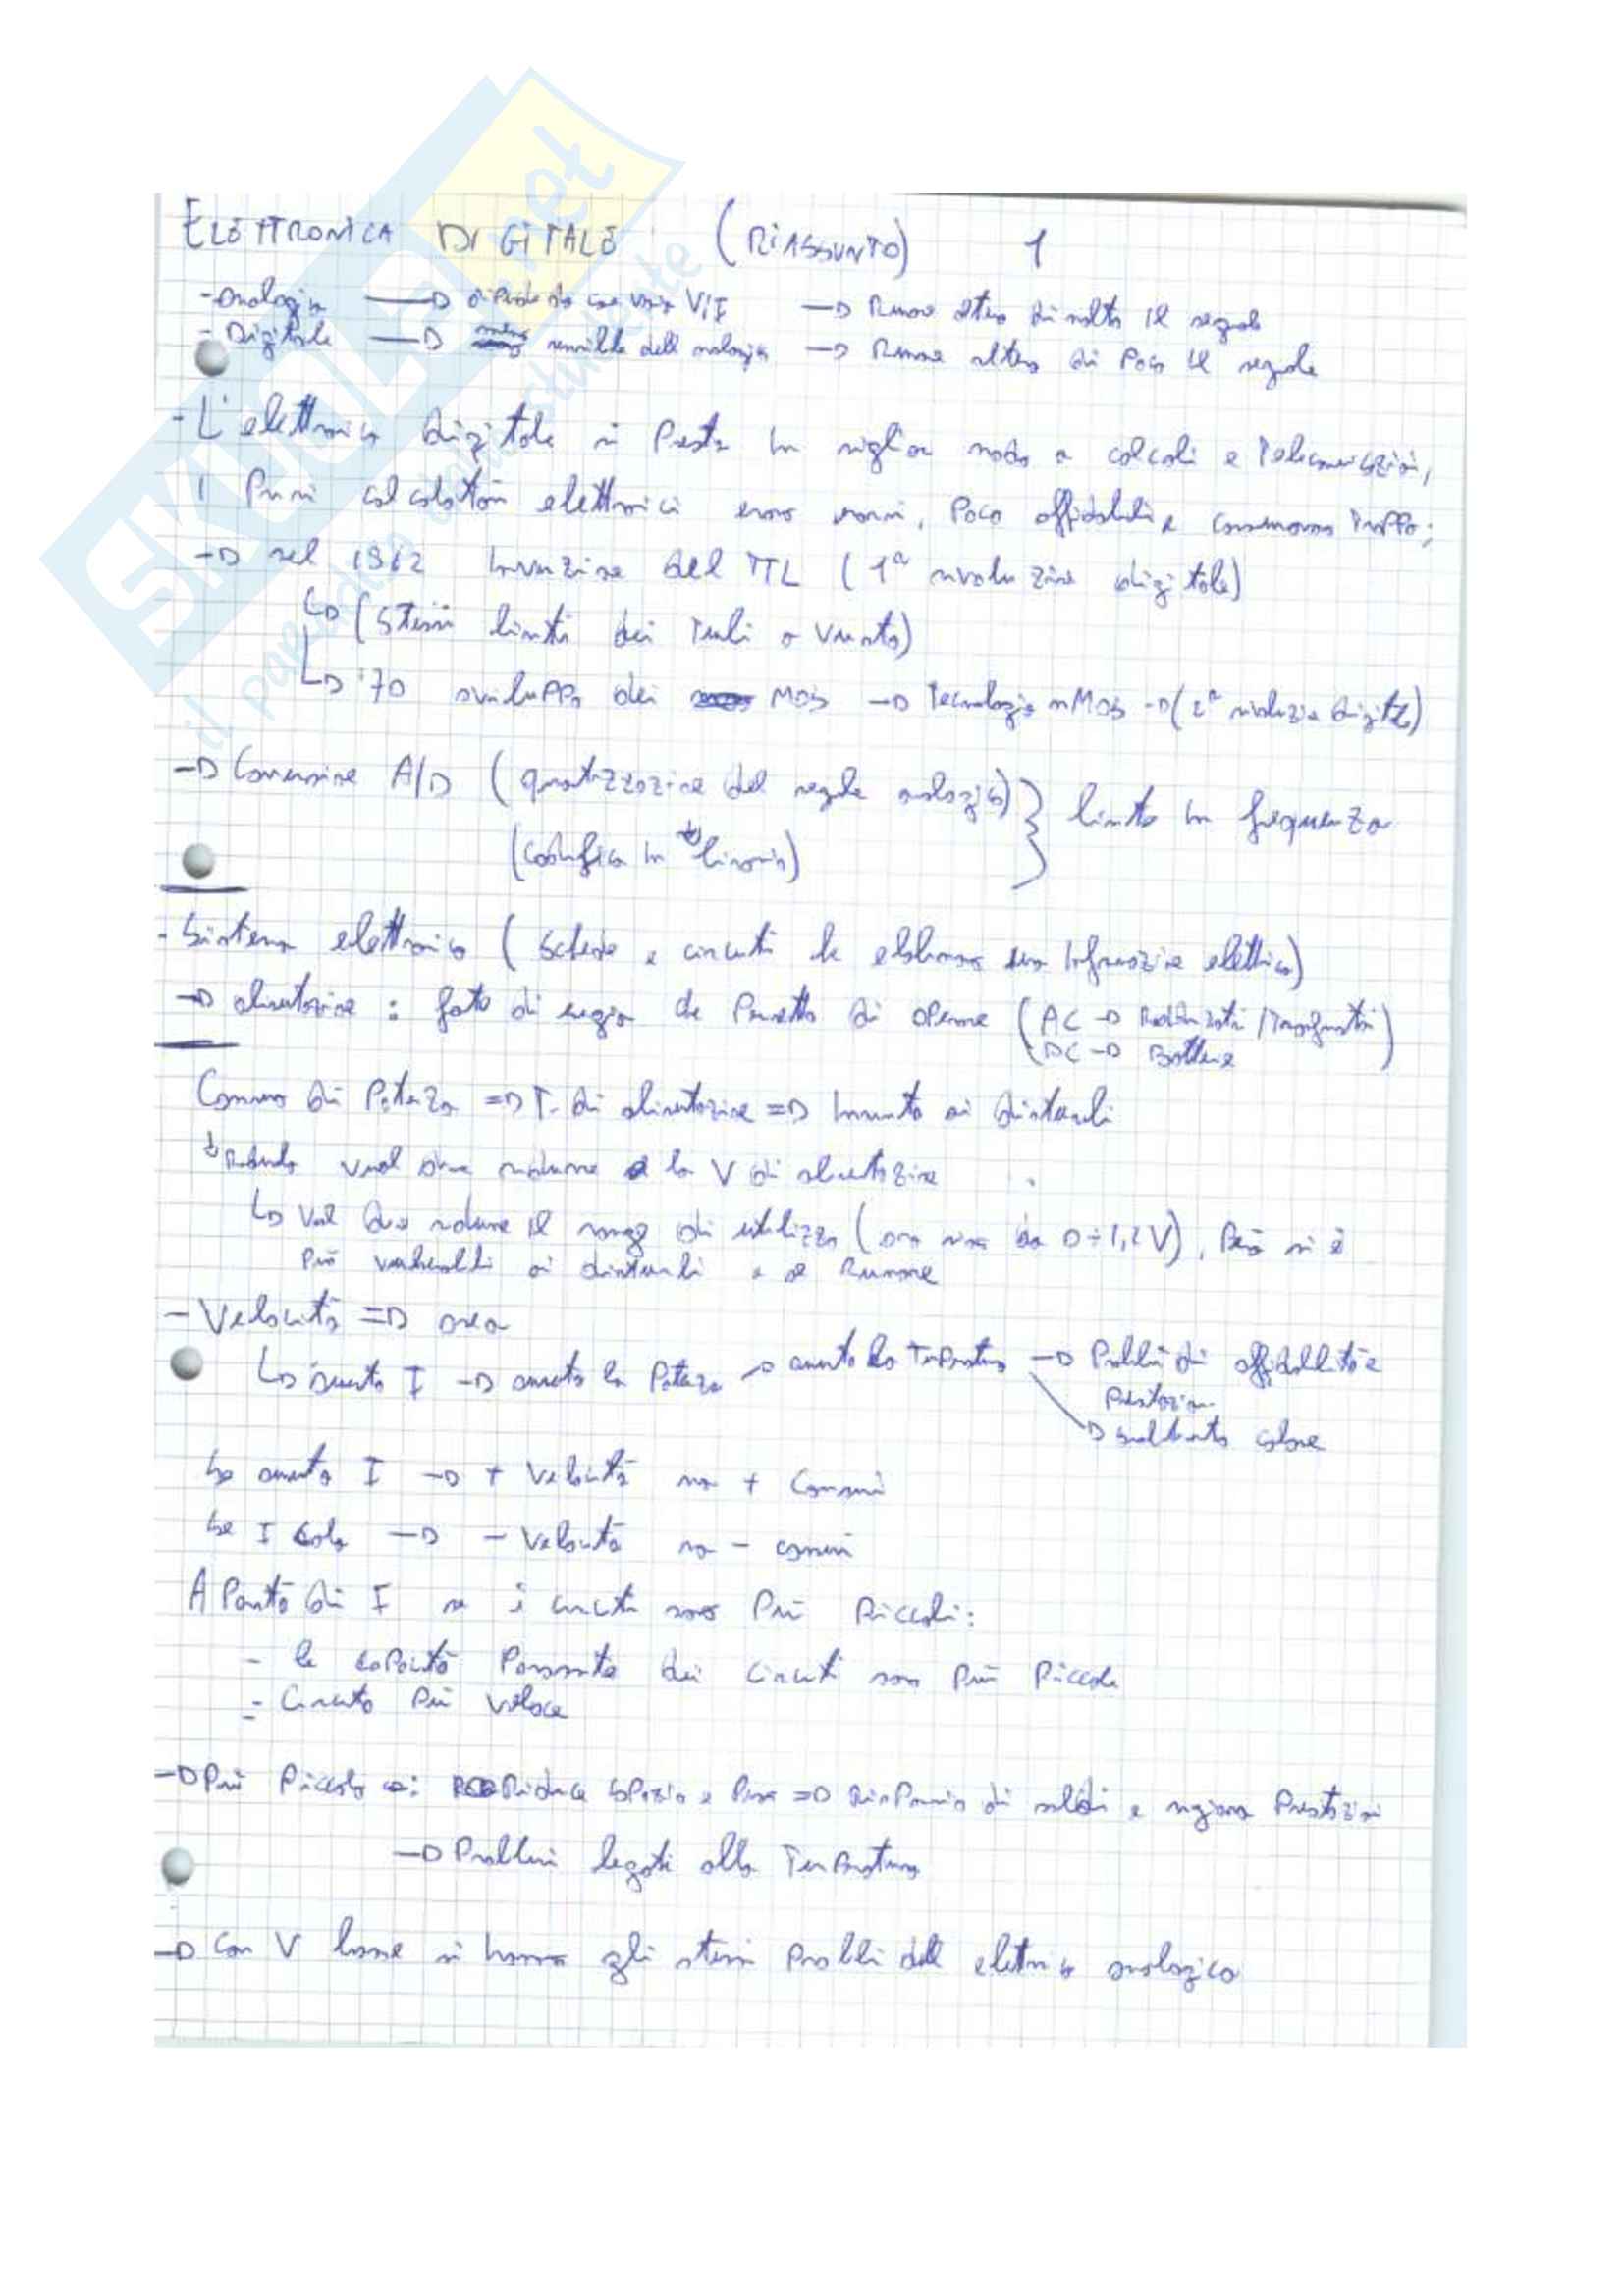 ELETTRONICA DIGITALE (RIASSUNTO) 1
- analogia —D dipende da come varia V/I —D Rumore altera di molto il segnale
- Digitale —D sensibile dell analogia —D Rumore altera di Poco il segnale
- L'elettronica digitale si Presta in miglior modo a calcoli e Telecomunicazioni,
i Primi calcolatori elettronici erano, Poco affidabili e consumavano Troppo;
—D nel 1962 invenzione del TTL (1ª rivoluzione digitale)
↳ (stessi limiti dei Tubi a vuoto)
↳ '70 sviluppo dei MOS —D Tecnologia nMOS —D (2ª rivoluzione digitale)
—D Conversione A/D (quantizzazione del segnale analogico) } limite in frequenza
(codifica in binario)
- Sistema elettronico (schede e circuiti che elaborano una informazione elettrica)
—D alimentazione : fonte di energia che Permette di operare (AC —D Raddrizzatori / Trasformatori)
(DC —D Batterie)
Consumo di Potenza =D T. di alimentazione =D immunità ai disturbi
Riducendo vuol dire ridurre la V di alimentazione
↳ vuol dire ridurre il range di utilizzo (ora siamo da 0÷1,2V), Però si è
Più vulnerabili ai disturbi e al Rumore
- Velocità =D area
↳ aumenta I —D aumenta la Potenza —D aumenta la Temperatura —D Problemi di affidabilità e
Prestazioni
—D smaltimento calore
Se aumenta I —D + velocità ma + Consumi
Se I cala —D - Velocità ma - consumi
A Parità di I se i circuiti sono Più Piccoli:
- le capacità Parassite dei circuiti sono Più Piccole
- Circuito Più veloce
—D Più Piccolo è: Riduce spazio e Peso =D Risparmio di soldi e migliora Prestazioni
—D Problemi legati alla Temperatura
—D con V basse si hanno gli stessi Problemi dell elettronica analogica
SKUOLA.net
il paradiso dello studente